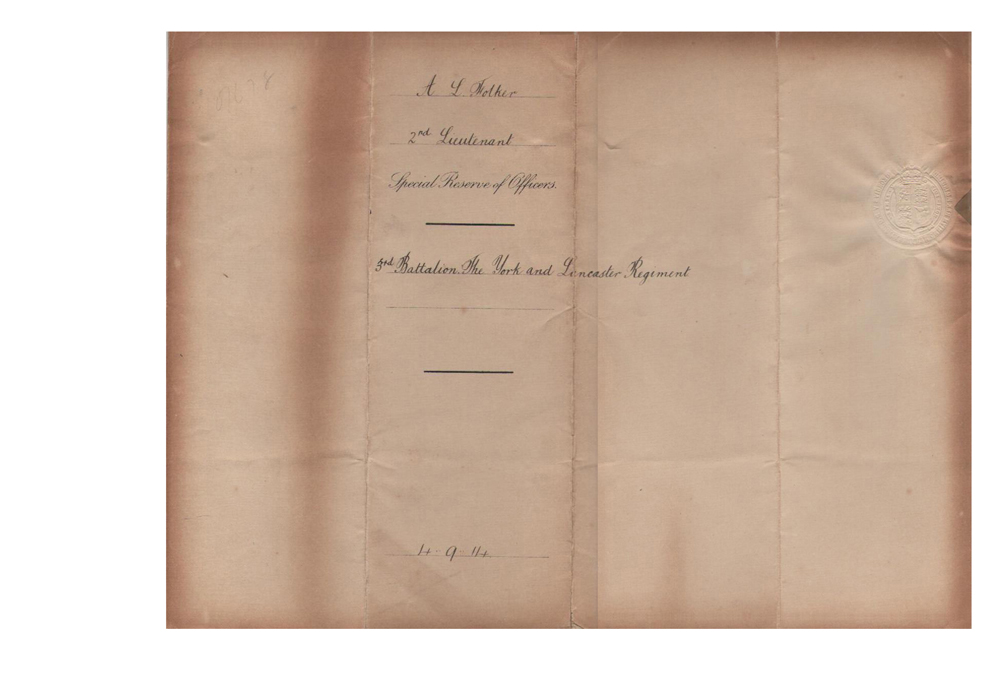 A L Wolker
2nd Lieutenant
Special Reserve of Officers.
3rd Battalion. The York and Lancaster Regiment
4 - 9 - 14.